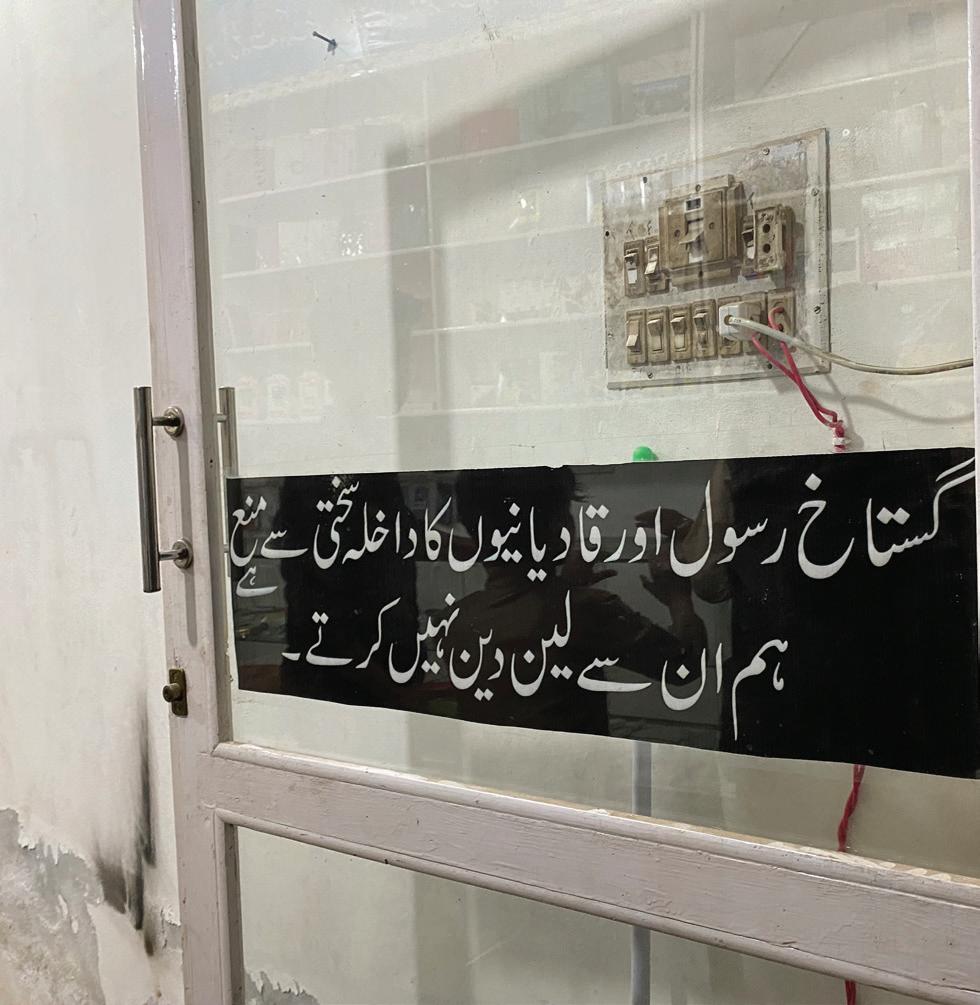 گستاخ رسول اور قادیانیوں کا داخلہ سختی سے منع ہے
ہم ان سے لین دین نہیں کرتے۔